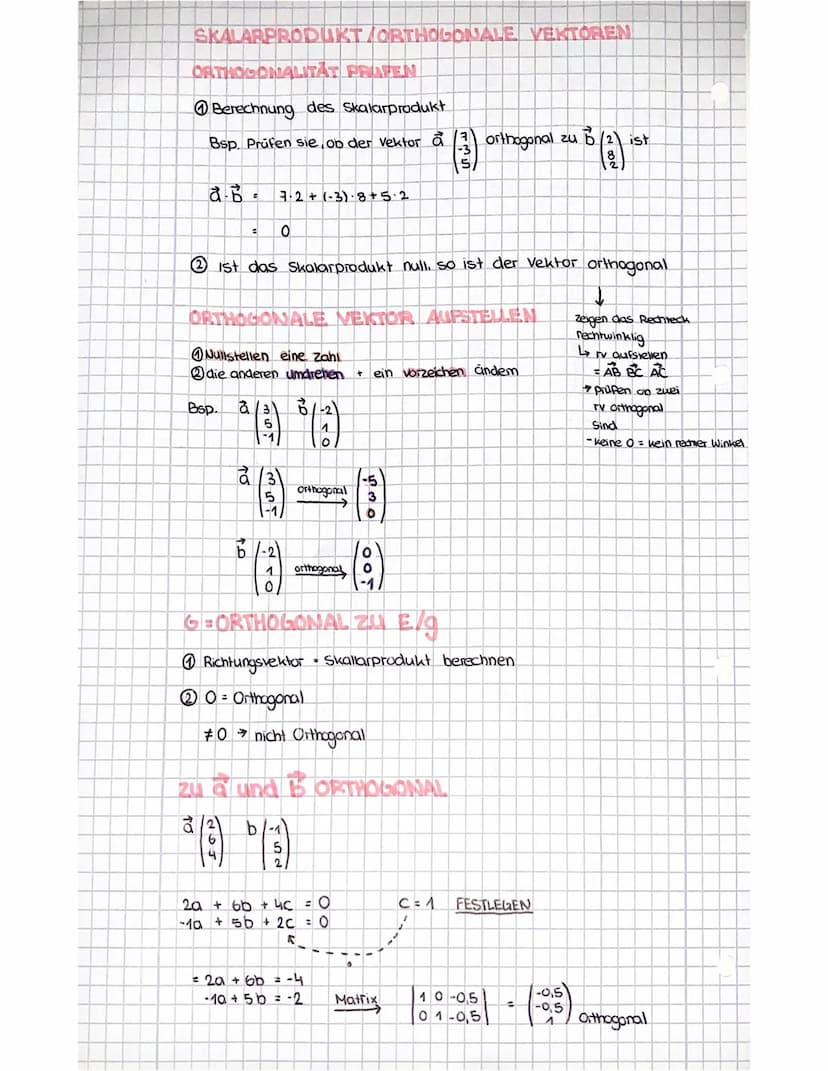 SKALARPRODUKT/ORTHOGONALE VEKTOREN
ORTHOGONALITÄT PRÜFEN
① Berechnung des Skalarprodukt
Bsp. Prüfen sie, ob der Vektor a⃗ (7 -3 5) orthogonal zu b⃗ (2 8 2) ist
a⃗ · b⃗ = 7·2 + (-3)·8 + 5·2
= 0
② ist das Skalarprodukt null, so ist der Vektor orthogonal
↓
zeigen das Rechteck
rechtwinklig
↳ rv aufstellen
= AB⃗ BC⃗ AC⃗
→ prüfen ob zwei
rv orthogonal
sind
- keine 0 = kein rechter Winkel
ORTHOGONALE VEKTOR AUFSTELLEN
① Nullstellen eine Zahl
② die anderen umdrehen + ein vorzeichen ändern
Bsp. a⃗ (3 5 -1) b⃗ (-2 1 0)
a⃗ (3 5 -1) orthogonal → (-5 3 0)
b⃗ (-2 1 0) orthogonal → (0 0 -1)
G = ORTHOGONAL ZU E/g
① Richtungsvektor · Skallarprodukt berechnen
② 0 = Orthogonal
≠0 → nicht Orthogonal
zu a⃗ und b⃗ ORTHOGONAL
a⃗ (2 6 4) b (-1 5 2)
2a + 6b + 4c = 0 c = 1 FESTLEGEN
-1a + 5b + 2c = 0
= 2a + 6b = -4
-1a + 5b = -2 Matrix → |1 0 -0,5| = (-0,5 -0,5 1) Orthogonal
|0 1 -0,5|